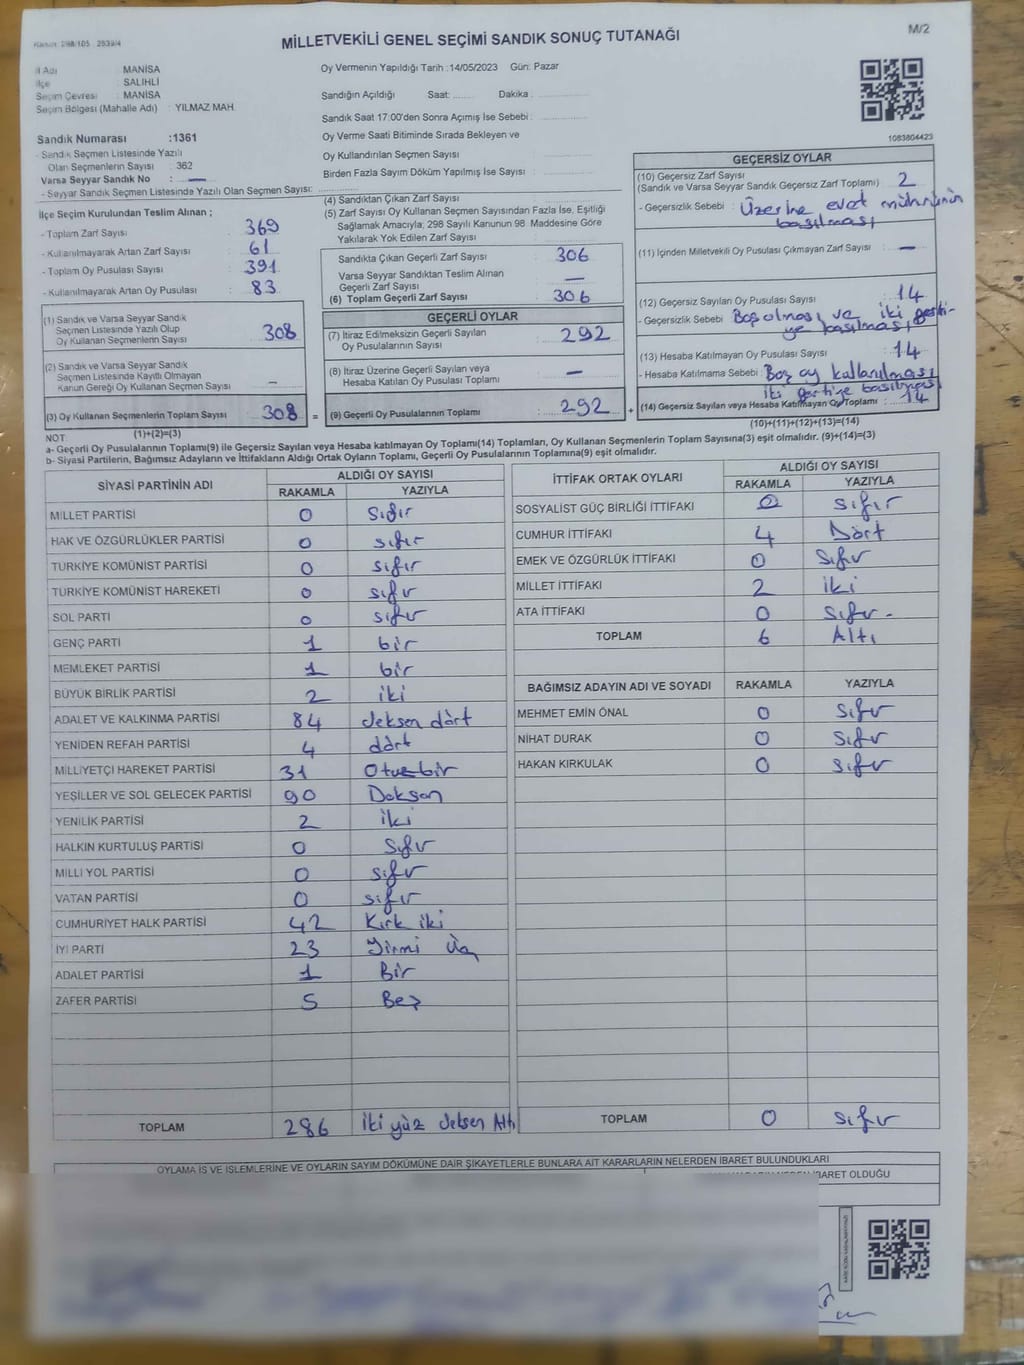 MİLLETVEKİLİ GENEL SEÇİMİ SANDIK SONUÇ TUTANAĞI
M/2
İl Adı MANİSA
İlçe SALİHLİ
Seçim Çevresi MANİSA
Seçim Bölgesi (Mahalle Adı) : YILMAZ MAH.
Oy Vermenin Yapıldığı Tarih :14/05/2023 Gün: Pazar
Sandığın Açıldığı Saat: ...... Dakika :
Sandık Saat 17:00'den Sonra Açımış İse Sebebi :
Oy Verme Saati Bitiminde Sırada Bekleyen ve
Oy Kullandırılan Seçmen Sayısı
Birden Fazla Sayım Döküm Yapılmış İse Sayısı
1083804423
Sandık Numarası :1361
- Sandık Seçmen Listesinde Yazılı
Olan Seçmenlerin Sayısı : 362
Varsa Seyyar Sandık No : —
- Seyyar Sandık Seçmen Listesinde Yazılı Olan Seçmen Sayısı:
İlçe Seçim Kurulundan Teslim Alınan ;
- Toplam Zarf Sayısı : 369
- Kullanılmayarak Artan Zarf Sayısı : 61
- Toplam Oy Pusulası Sayısı : 391
- Kullanılmayarak Artan Oy Pusulası : 83
(1) Sandık ve Varsa Seyyar Sandık
Seçmen Listesinde Yazılı Olup
Oy Kullanan Seçmenlerin Sayısı : 308
(2) Sandık ve Varsa Seyyar Sandık
Seçmen Listesinde Kayıtlı Olmayan
Kanun Gereği Oy Kullanan Seçmen Sayısı : –
(3) Oy Kullanan Seçmenlerin Toplam Sayısı : 308 =
(1)+(2)=(3)
(4) Sandıktan Çıkan Zarf Sayısı
(5) Zarf Sayısı Oy Kullanan Seçmen Sayısından Fazla İse, Eşitliği
Sağlamak Amacıyla; 298 Sayılı Kanunun 98. Maddesine Göre
Yakılarak Yok Edilen Zarf Sayısı
Sandıkta Çıkan Geçerli Zarf Sayısı : 306
Varsa Seyyar Sandıktan Teslim Alınan
Geçerli Zarf Sayısı : —
(6) Toplam Geçerli Zarf Sayısı : 306
GEÇERLİ OYLAR
(7) İtiraz Edilmeksizin Geçerli Sayılan
Oy Pusulalarının Sayısı : 292
(8) İtiraz Üzerine Geçerli Sayılan veya
Hesaba Katılan Oy Pusulası Toplamı : —
(9) Geçerli Oy Pusulalarının Toplamı : 292 +
GEÇERSİZ OYLAR
(10) Geçersiz Zarf Sayısı
(Sandık ve Varsa Seyyar Sandık Geçersiz Zarf Toplamı) : 2
- Geçersizlik Sebebi : Üzerine evet mührünün
basılması
(11) İçinden Milletvekili Oy Pusulası Çıkmayan Zarf Sayısı : —
(12) Geçersiz Sayılan Oy Pusulası Sayısı : 14
- Geçersizlik Sebebi : Boş olması, ve iki parti-
ye basılması,
(13) Hesaba Katılmayan Oy Pusulası Sayısı : 14
- Hesaba Katılmama Sebebi : Boş oy kullanılması
iki partiye basılması
(14) Geçersiz Sayılan veya Hesaba Katılmayan Oy Toplamı : 14
(10)+(11)+(12)+(13)=(14)
NOT:
a- Geçerli Oy Pusulalarının Toplamı(9) ile Geçersiz Sayılan veya Hesaba katılmayan Oy Toplamı(14) Toplamları, Oy Kullanan Seçmenlerin Toplam Sayısına(3) eşit olmalıdır. (9)+(14)=(3)
b- Siyasi Partilerin, Bağımsız Adayların ve İttifakların Aldığı Ortak Oyların Toplamı, Geçerli Oy Pusulalarının Toplamına(9) eşit olmalıdır.
SİYASİ PARTİNİN ADI ALDIĞI OY SAYISI
RAKAMLA YAZIYLA
MİLLET PARTİSİ 0 Sıfır
HAK VE ÖZGÜRLÜKLER PARTİSİ 0 sıfır
TÜRKİYE KOMÜNİST PARTİSİ 0 sıfır
TÜRKİYE KOMÜNİST HAREKETİ 0 sıfır
SOL PARTİ 0 sıfır
GENÇ PARTİ 1 bir
MEMLEKET PARTİSİ 1 bir
BÜYÜK BİRLİK PARTİSİ 2 iki
ADALET VE KALKINMA PARTİSİ 84 seksen dört
YENİDEN REFAH PARTİSİ 4 dört
MİLLİYETÇİ HAREKET PARTİSİ 31 Otuzbir
YEŞİLLER VE SOL GELECEK PARTİSİ 90 Doksan
YENİLİK PARTİSİ 2 iki
HALKIN KURTULUŞ PARTİSİ 0 Sıfır
MİLLİ YOL PARTİSİ 0 sıfır
VATAN PARTİSİ 0 sıfır
CUMHURİYET HALK PARTİSİ 42 Kırk iki
İYİ PARTİ 23 Yirmi Üç
ADALET PARTİSİ 1 Bir
ZAFER PARTİSİ 5 Beş
TOPLAM 286 iki yüz seksen Altı
İTTİFAK ORTAK OYLARI ALDIĞI OY SAYISI
RAKAMLA YAZIYLA
SOSYALİST GÜÇ BİRLİĞİ İTTİFAKI 0 sıfır
CUMHUR İTTİFAKI 4 Dört
EMEK VE ÖZGÜRLÜK İTTİFAKI 0 Sıfır
MİLLET İTTİFAKI 2 iki
ATA İTTİFAKI 0 Sıfır -
TOPLAM 6 Altı
BAĞIMSIZ ADAYIN ADI VE SOYADI RAKAMLA YAZIYLA
MEHMET EMİN ÖNAL 0 Sıfır
NİHAT DURAK 0 Sıfır
HAKAN KIRKULAK 0 Sıfır
TOPLAM 0 Sıfır
OYLAMA İŞ VE İŞLEMLERİNE VE OYLARIN SAYIM DÖKÜMÜNE DAİR ŞİKAYETLERLE BUNLARA AİT KARARLARIN NELERDEN İBARET BULUNDUKLARI
İBARET OLDUĞU